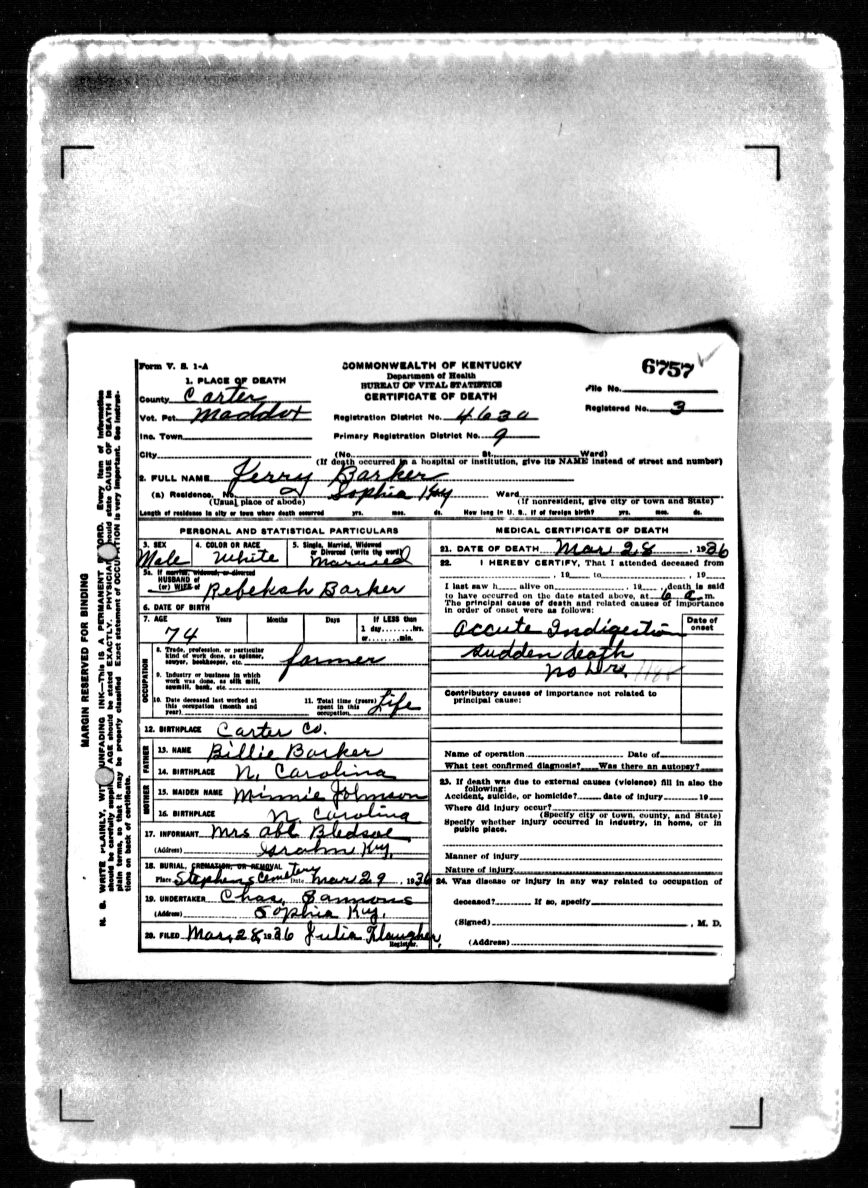 Form V. S. 1-A
COMMONWEALTH OF KENTUCKY
Department of Health
BUREAU OF VITAL STATISTICS
CERTIFICATE OF DEATH
6757
File No.
Registered No. 3
1. PLACE OF DEATH
County Carter
Vot. Pct. Maddox
Inc. Town
City
Registration District No. 4630
Primary Registration District No. 9
(No. St. Ward)
(If death occurred in a hospital or institution, give its NAME instead of street and number)
2. FULL NAME Jerry Barker
(a) Residence, No. Sophia Ky Ward
(Usual place of abode) (If nonresident, give city or town and State)
Length of residence in city or town where death occurred yrs. mos. ds. How long in U. S., if of foreign birth? yrs. mos. ds.
PERSONAL AND STATISTICAL PARTICULARS
3. SEX
Male
4. COLOR OR RACE
White
5. Single, Married, Widowed
or Divorced (write the word)
Married
5a. If married, widowed, or divorced
HUSBAND of
(or) WIFE of Rebekah Barker
6. DATE OF BIRTH
7. AGE Years Months Days If LESS than
1 day,........hrs.
or........min.
74
OCCUPATION
8. Trade, profession, or particular
kind of work done, as spinner,
sawyer, bookkeeper, etc. farmer
9. Industry or business in which
work was done, as silk mill,
sawmill, bank, etc.
10. Date deceased last worked at
this occupation (month and
year)
11. Total time (years)
spent in this
occupation Life
12. BIRTHPLACE Carter Co.
FATHER
13. NAME Billie Barker
14. BIRTHPLACE N. Carolina
MOTHER
15. MAIDEN NAME Minnie Johnson
16. BIRTHPLACE N. Carolina
17. INFORMANT Mrs Abl Bledsoe
(Address) Grahn Ky.
18. BURIAL, CREMATION, OR REMOVAL
Place Stephens Cemetery Date Mar 29, 1936
19. UNDERTAKER Chas.
(Address) Sophia Ky.
20. FILED Mar. 28, 1936 Julia Flaugher
Registrar.
MEDICAL CERTIFICATE OF DEATH
21. DATE OF DEATH Mar 28, 1936
22. I HEREBY CERTIFY, That I attended deceased from
, 19 to , 19
I last saw h alive on , 19 , death is said
to have occurred on the date stated above, at 6 a. m.
The principal cause of death and related causes of importance
in order of onset were as follows:
Date of
onset
Accute Indigestion
Sudden death
no Drs.
Contributory causes of importance not related to
principal cause:
Name of operation Date of
What test confirmed diagnosis? Was there an autopsy?
23. If death was due to external causes (violence) fill in also the
following:
Accident, suicide, or homicide? date of injury 19
Where did injury occur?
(Specify city or town, county, and State)
Specify whether injury occurred in industry, in home, or in
public place.
Manner of injury
Nature of injury
24. Was disease or injury in any way related to occupation of
deceased? If so, specify
(Signed) , M. D.
(Address)
MARGIN RESERVED FOR BINDING
N. B. WRITE PLAINLY, WITH UNFADING INK—THIS IS A PERMANENT RECORD. Every item of information
should be carefully supplied. AGE should be stated EXACTLY. PHYSICIANS should state CAUSE OF DEATH in
plain terms, so that it may be properly classified. Exact statement of OCCUPATION is very important. See instruc-
tions on back of certificate.